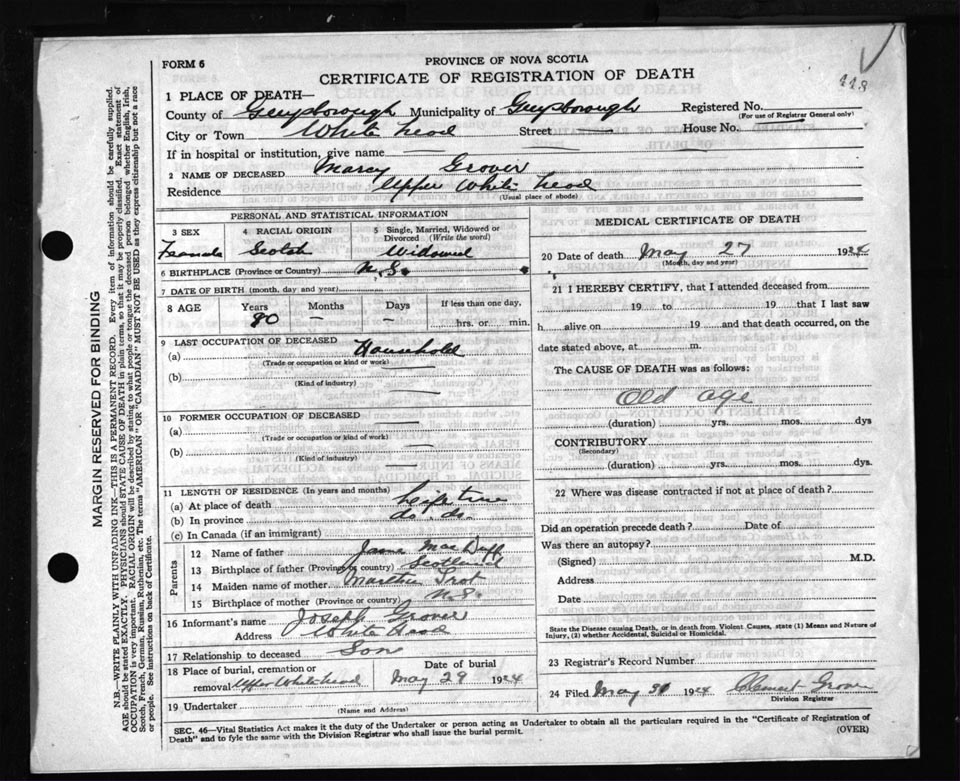 FORM 6
PROVINCE OF NOVA SCOTIA
CERTIFICATE OF REGISTRATION OF DEATH
448
1 PLACE OF DEATH—
County of Guysborough Municipality of Guysborough Registered No.
(For use of Registrar General only)
City or Town White Head Street House No.
If in hospital or institution, give name
2 NAME OF DECEASED Marcy Grover
Residence Upper White Head
(Usual place of abode)
PERSONAL AND STATISTICAL INFORMATION
3 SEX 4 RACIAL ORIGIN 5 Single, Married, Widowed or Divorced (Write the word)
Female Scotch Widowed
6 BIRTHPLACE (Province or Country) N.S.
7 DATE OF BIRTH (month, day and year)
8 AGE Years Months Days If less than one day,
80 — — hrs. or min.
9 LAST OCCUPATION OF DECEASED
(a) Household
(Trade or occupation or kind or work)
(b)
(Kind of industry)
10 FORMER OCCUPATION OF DECEASED
(a)
(Trade or occupation or kind of work)
(b)
(Kind of industry)
11 LENGTH OF RESIDENCE (In years and months)
(a) At place of death Life time
(b) In province do. do.
(c) In Canada (if an immigrant)
Parents
12 Name of father James MacDuff
13 Birthplace of father (Province or country) Scotland
14 Maiden name of mother
15 Birthplace of mother (Province or country) N.S.
16 Informant's name Joseph Grover
Address White Head
17 Relationship to deceased Son
18 Place of burial, cremation or removal Upper Whitehead Date of burial May 29 1924
19 Undertaker
(Name and Address)
MEDICAL CERTIFICATE OF DEATH
20 Date of death May 27 1924
(Month, day and year)
21 I HEREBY CERTIFY, that I attended deceased from
19 to 19 that I last saw
h alive on 19 and that death occurred, on
date stated above, at m.
The CAUSE OF DEATH was as follows:
Old age
(duration) yrs. mos. dys
CONTRIBUTORY
(Secondary)
(duration) yrs. mos. dys.
22 Where was disease contracted if not at place of death?
Did an operation precede death? Date of
Was there an autopsy?
(Signed) M.D.
Address
Date
State the Disease causing Death, or in death from Violent Causes, state (1) Means and Nature of
Injury, (2) whether Accidental, Suicidal or Homicidal.
23 Registrar's Record Number
24 Filed May 31 1924 Clement Grover
Division Registrar
SEC. 46—Vital Statistics Act makes it the duty of the Undertaker or person acting as Undertaker to obtain all the particulars required in the "Certificate of Registration of
Death" and to fyle the same with the Division Registrar who shall issue the burial permit. (OVER)
MARGIN RESERVED FOR BINDING
N.B.—WRITE PLAINLY WITH UNFADING INK—THIS IS A PERMANENT RECORD. Every item of information should be carefully supplied.
AGE should be stated EXACTLY. PHYSICIANS should STATE CAUSE OF DEATH in plain terms, so that it may be properly classified. Exact statement of
OCCUPATION is very important. RACIAL ORIGIN will be described by stating to what people or tongue the deceased person belonged whether English, Irish,
Scotch, French, German, Russian, Ruthenian, etc. The terms "AMERICAN" OR "CANADIAN" MUST NOT BE USED as they express citizenship but not a race
or people. See instructions on back of Certificate.